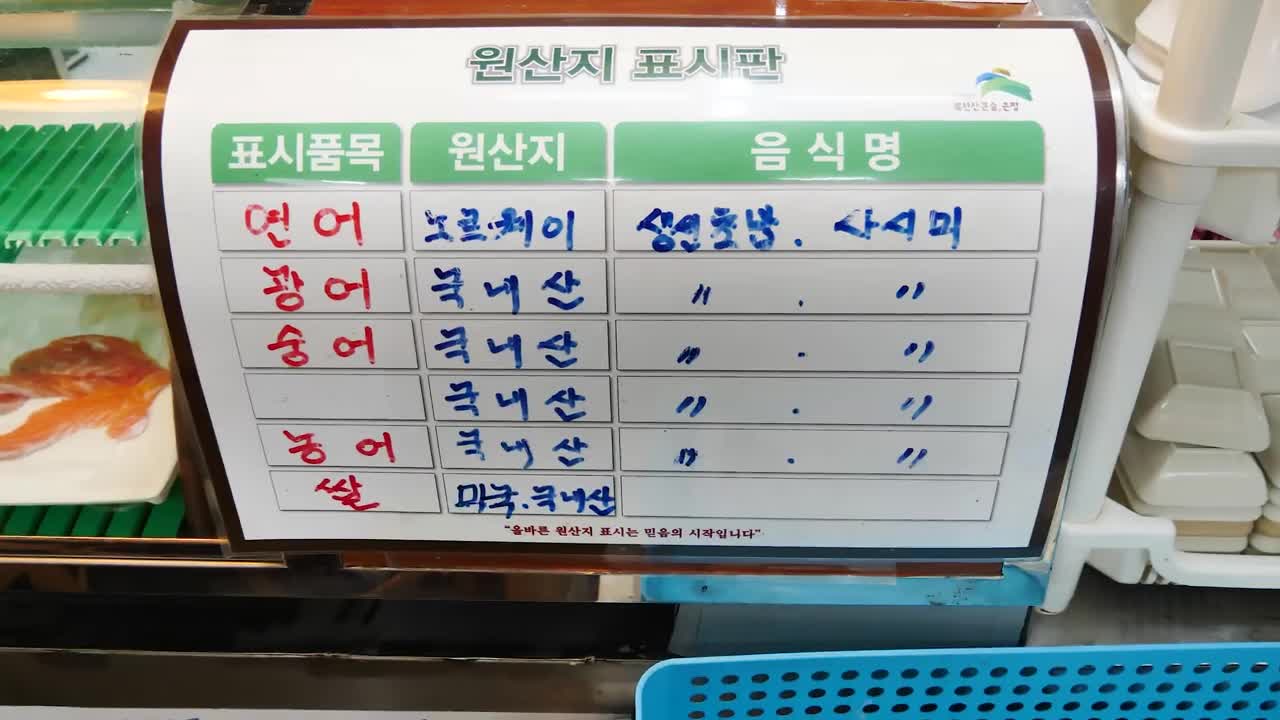 원산지 표시판
북한산 큰 숲, 은평
표시품목 원산지 음식명
연어 노르웨이 생선초밥. 사시미
광어 국내산 〃 . 〃
숭어 국내산 〃 . 〃
국내산 〃 . 〃
농어 국내산 〃 . 〃
쌀 미국.국내산
"올바른 원산지 표시는 믿음의 시작입니다"